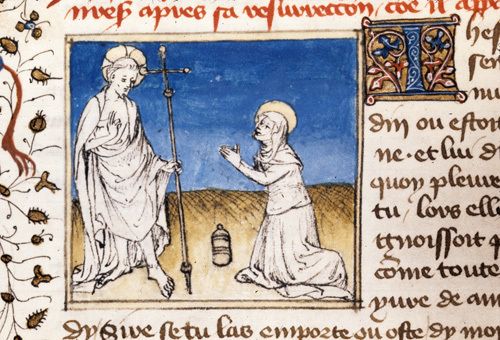 apres sa resurrection / coe il
Ihes
din ou estoit
ne · et lui d
quoy pleure
tu / lors elle
ggnoissoit q
cõme toute
yure de am
dy Sire se tu las emporte ou oste dy moy